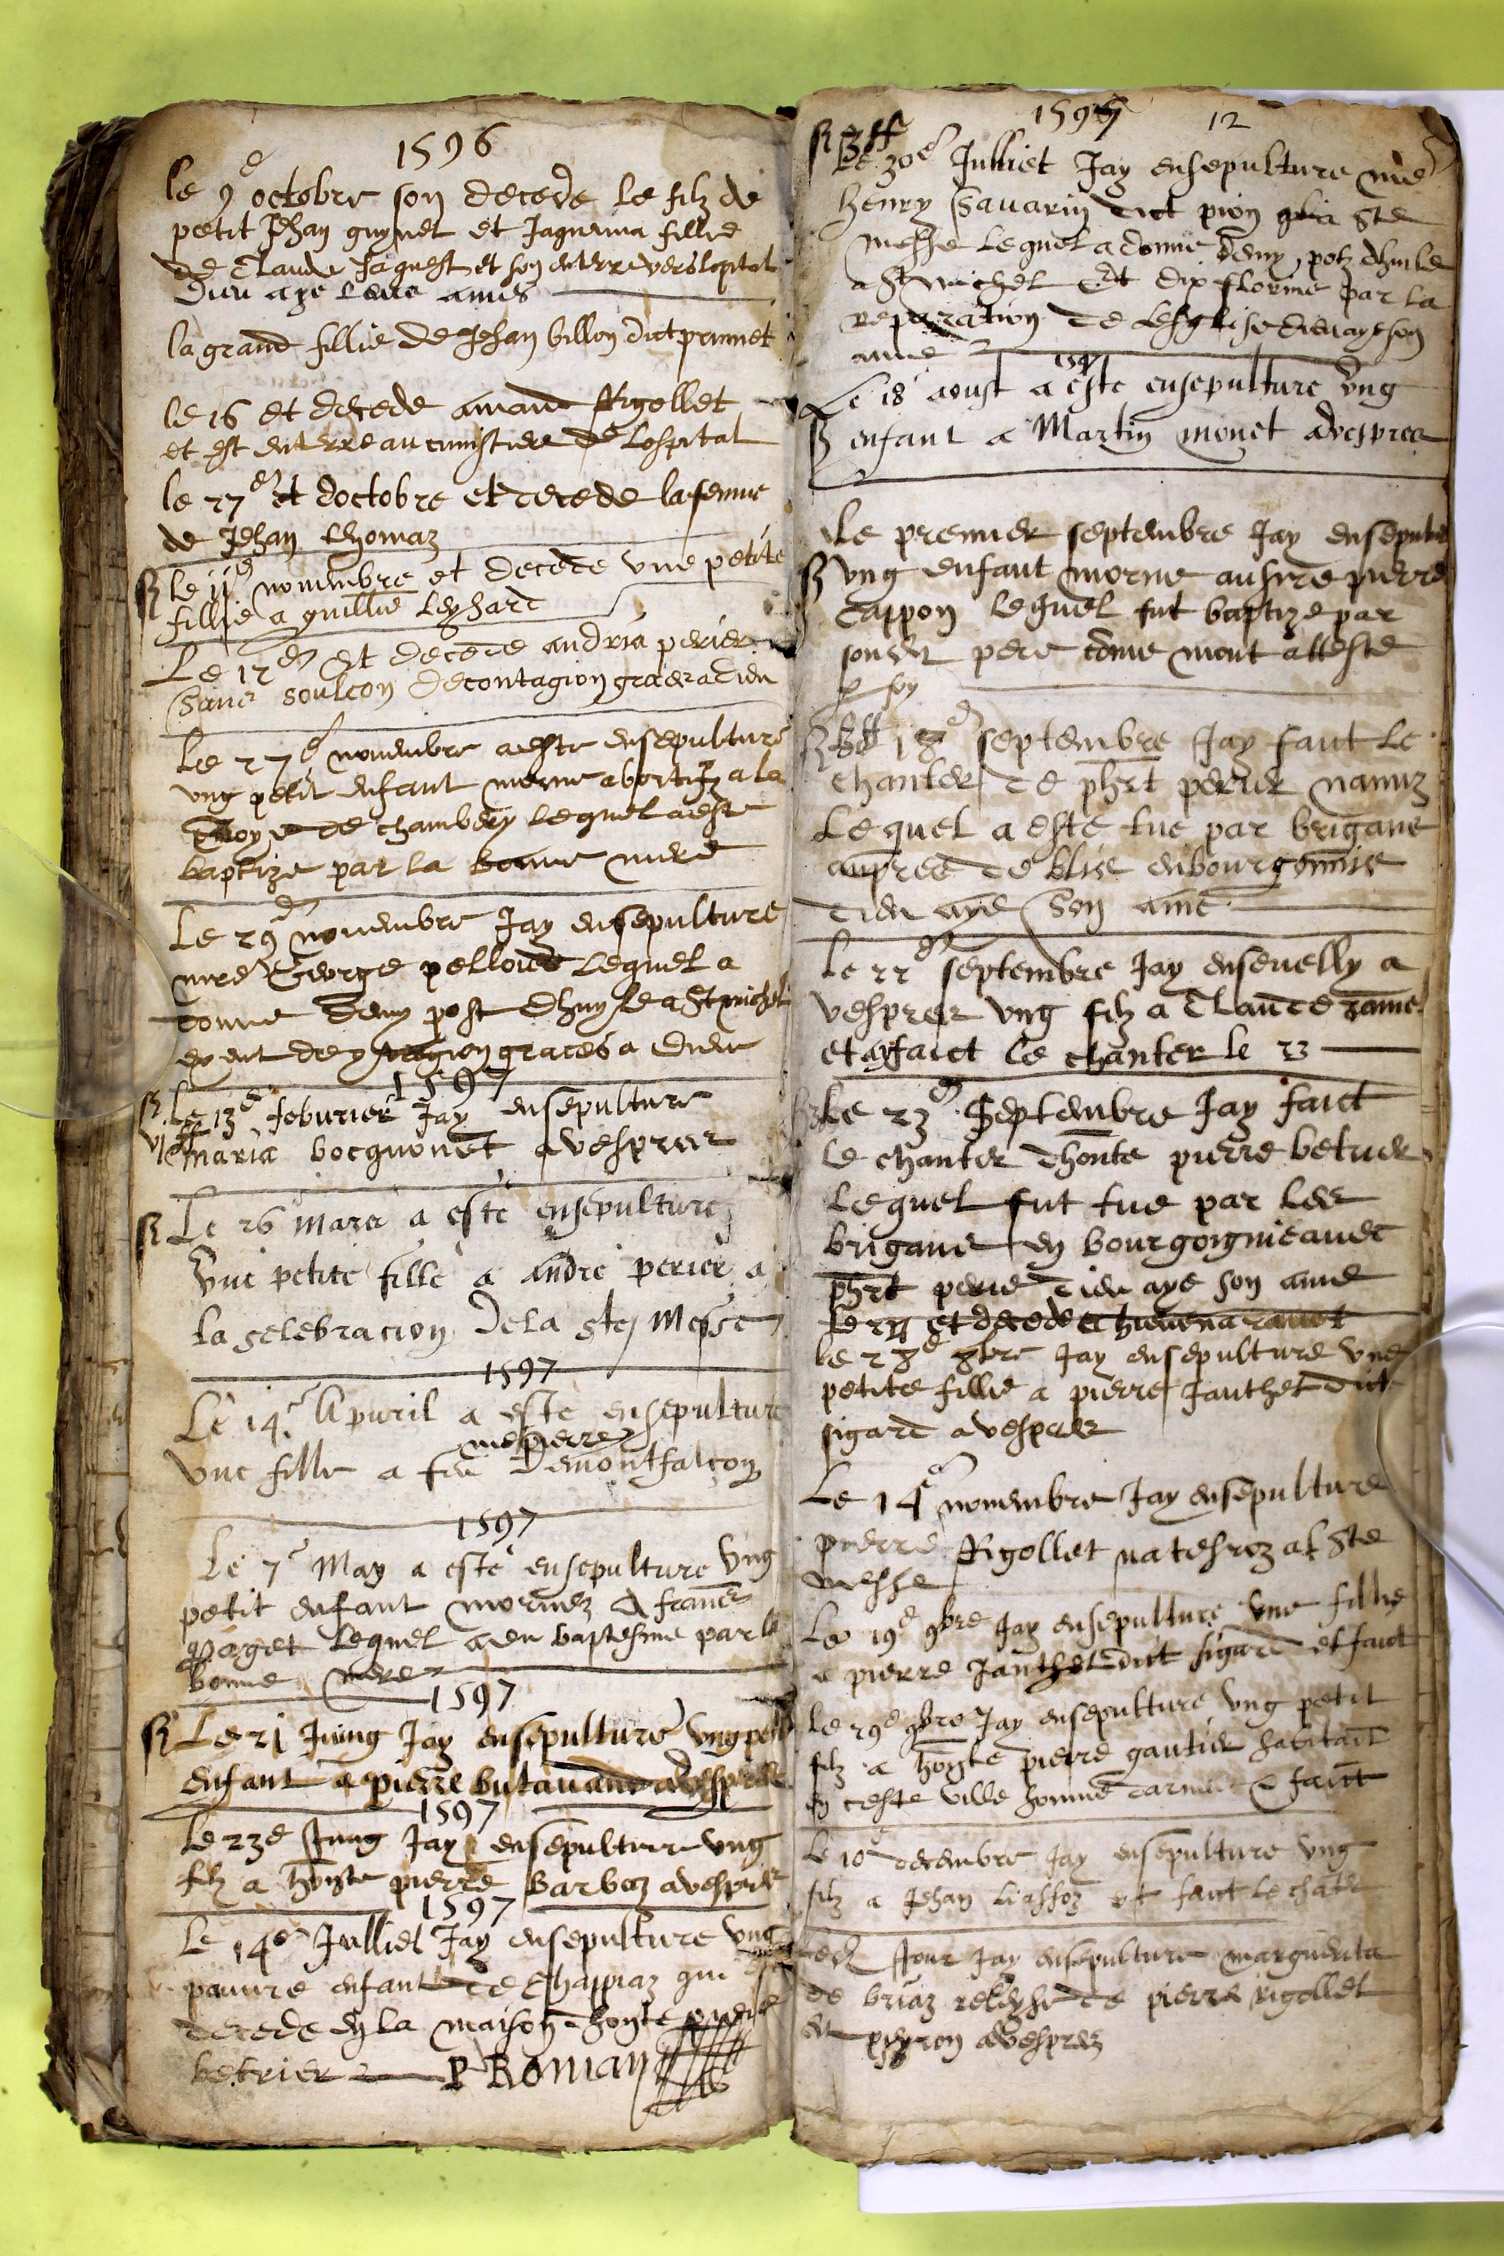 1596
le 9e octobre son decede le filz de
petit Jehan guynet et Jaquema fillie
de Claude Jaquest et son enterre vers lopital
Dieu aye leurs ames
la grand fillie de Jehan billon dict prunet
le 16 et decede amand Rigollet
et est enterre au cimistiere de lospital
le 27e et doctobre et decede la femme
de Jehan thomaz
le 11e novembre et decede une petite
fillie a guillie leyhard
Le 12e et decede andria perier
sans soulcon de contagion graces a dieu
Le 27e novembre a este ensepulture
ung petit enfant morne abortifz a la
de chambery lequel a este
baptize par la bonne mere
Le 29e novembre Jay ensepulture
mre George pelloud lequel a
donne demy post dhuyle a St michel
graces a dieu
1597
Le 13e feburier Jay ensepulture
maria bocquonet a vesprer
Le 26 mars a este ensepulture
Une petite fille a andre perier a
la selebracion de la ste Messe
1597
Le 14e Apuril a este ensepulture
me pierre
une fille a feu Demontfalcon
1597
Le 7e May a este ensepulture Ung
petit enfant mornez a francs
paget lequel a eu baptesme par la
bonne mere
1597
Le 21 Juing Jay ensepulture ung petit
enfant a pierre butavand a vesprer
1597
Le 23e Juing Jay ensepulture ung
filz a honste pierre barboz a vesprer
1597
Le 14e Julliet Jay ensepulture ung
pauvre enfant de Chappiaz qui
decede en la maison dhonste pierre
betrier P Roman
1597 12
Le 30e Julliet Jay ensepulture mre
henry Savarin dict pion ste
messe lequel a donne demy potz dhuile
a St michel Et dix florins par la
reparation de Lesglise dieu aye son
ame
1597
Le 18 aoust a este ensepulture Ung
enfant a Martin monet a vespres
Le premier septembre Jay ensepulture
ung enfant morne au sire pierre
Cappon lequel fut baptize par
sondit pere come mont atteste
p foy
18e septembre Jay faict le
chanter de phrt perier nanuz
Lequel a este tue par brigans
aupres de blise en bourgonnie
dieu aye son ame
Le 22e septembre Jay ensevelly a
vesprer ung filz a Claude rame
et ay faict le chanter le 23
Le 23e Septembre Jay faict
le chanter dhonte pierre betrier
Lequel fut tue par les
brigans en bourgoignie avec
phrt perie dieu aye son ame
le 28e 8bre Jay ensepulture une
petite fillie a pierre Janthet dict
sigard a vesprer
Le 14e novembre Jay ensepulture
pierre Rigollet a la Ste
messe
Le 19e 9bre Jay ensepulture une fillie
a pierre Janthet dict sigard et faict
Le 29e 9bre Jay ensepulture ung petit
filz a honste pierre gautier habitant
en ceste ville homme darmes & faict
Le 10e decembre Jay ensepulture ung
filz a Jehan liassoz et faict le chater
Led Jour Jay ensepulture marguerita
de briaz de pierre rigollet
dit peyron a vesprez